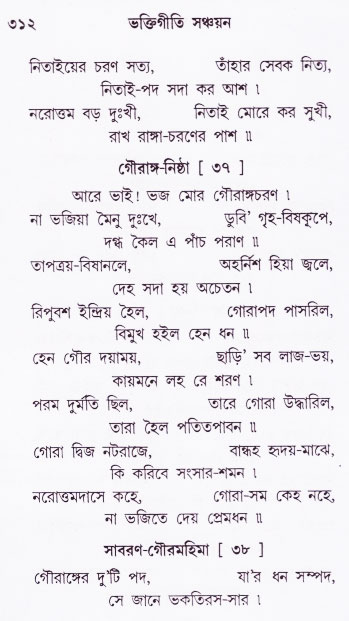 ৩১২ ভক্তিগীতি সঞ্চয়ন
নিতাইয়ের চরণ সত্য, তাঁহার সেবক নিত্য,
নিতাই-পদ সদা কর আশ ৷
নরোত্তম বড় দুঃখী, নিতাই মোরে কর সুখী,
রাখ রাঙ্গা-চরণের পাশ ৷৷
গৌরাঙ্গ-নিষ্ঠা [ ৩৭ ]
আরে ভাই! ভজ মোর গৌরাঙ্গচরণ ৷
না ভজিয়া মৈনু দুঃখে, ডুবি' গৃহ-বিষকূপে,
দগ্ধ কৈল এ পাঁচ পরাণ ৷৷
তাপত্রয়-বিষানলে, অহর্নিশ হিয়া জ্বলে,
দেহ সদা হয় অচেতন ৷
রিপুবশ ইন্দ্রিয় হৈল, গোরাপদ পাসরিল,
বিমুখ হইল হেন ধন ৷৷
হেন গৌর দয়াময়, ছাড়ি' সব লাজ-ভয়,
কায়মনে লহ রে শরণ ৷
পরম দুর্মতি ছিল, তারে গোরা উদ্ধারিল,
তারা হৈল পতিতপাবন ৷৷
গোরা দ্বিজ নটরাজে, বান্ধহ হৃদয়-মাঝে,
কি করিবে সংসার-শমন ৷
নরোত্তমদাসে কহে, গোরা-সম কেহ নহে,
না ভজিতে দেয় প্রেমধন ৷৷
সাবরণ-গৌরমহিমা [ ৩৮ ]
গৌরাঙ্গের দু'টি পদ, যা'র ধন সম্পদ,
সে জানে ভকতিরস-সার ৷